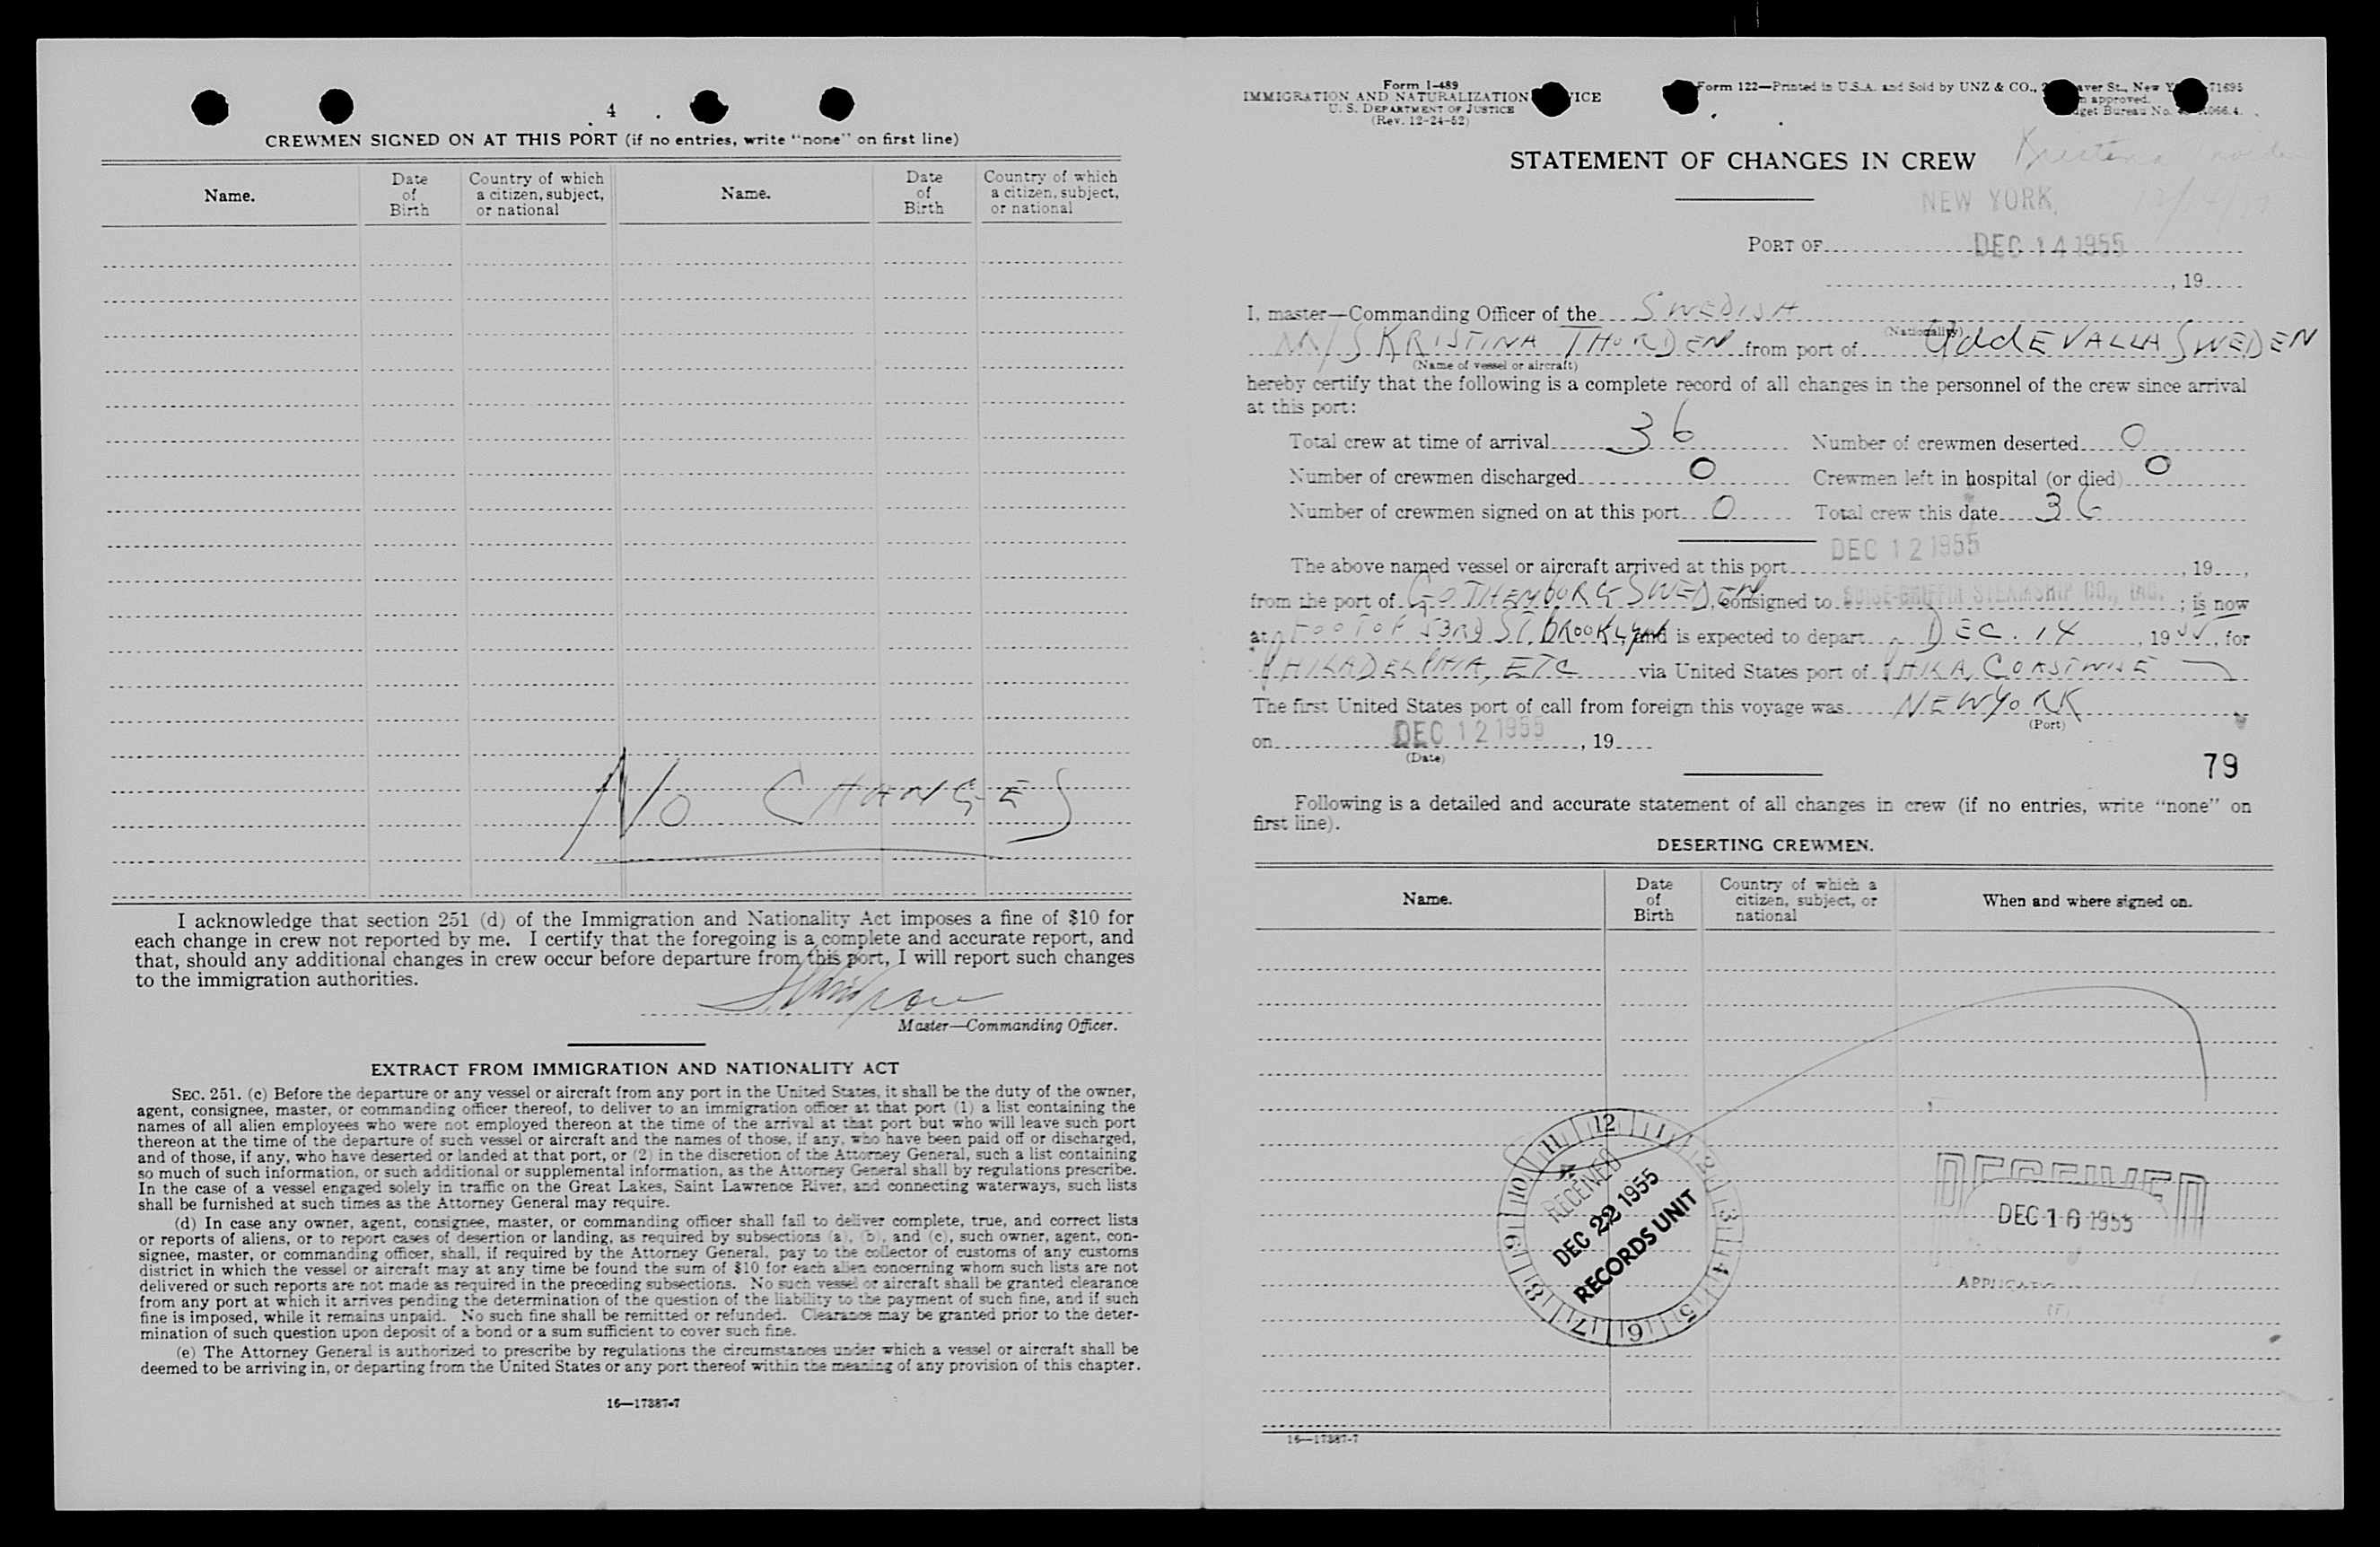 4
CREWMEN SIGNED ON AT THIS PORT (if no entries, write "none" on first line)
Name. Date of Birth Country of which a citizen, subject, or national Name. Date of Birth Country of which a citizen, subject, or national
NO CHANGES
I acknowledge that section 251 (d) of the Immigration and Nationality Act imposes a fine of $10 for
each change in crew not reported by me. I certify that the foregoing is a complete and accurate report, and
that, should any additional changes in crew occur before departure from this port, I will report such changes
to the immigration authorities.
Master—Commanding Officer.
EXTRACT FROM IMMIGRATION AND NATIONALITY ACT
SEC. 251. (c) Before the departure or any vessel or aircraft from any port in the United States, it shall be the duty of the owner,
agent, consignee, master, or commanding officer thereof, to deliver to an immigration officer at that port (1) a list containing the
names of all alien employees who were not employed thereon at the time of the arrival at that port but who will leave such port
thereon at the time of the departure of such vessel or aircraft and the names of those, if any, who have been paid off or discharged,
and of those, if any, who have deserted or landed at that port, or (2) in the discretion of the Attorney General, such a list containing
so much of such information, or such additional or supplemental information, as the Attorney General shall by regulations prescribe.
In the case of a vessel engaged solely in traffic on the Great Lakes, Saint Lawrence River, and connecting waterways, such lists
shall be furnished at such times as the Attorney General may require.
(d) In case any owner, agent, consignee, master, or commanding officer shall fail to deliver complete, true, and correct lists
or reports of aliens, or to report cases of desertion or landing, as required by subsections (a), (b), and (c), such owner, agent, con-
signee, master, or commanding officer, shall, if required by the Attorney General, pay to the collector of customs of any customs
district in which the vessel or aircraft may at any time be found the sum of $10 for each alien concerning whom such lists are not
delivered or such reports are not made as required in the preceding subsections. No such vessel or aircraft shall be granted clearance
from any port at which it arrives pending the determination of the question of the liability to the payment of such fine, and if such
fine is imposed, while it remains unpaid. No such fine shall be remitted or refunded. Clearance may be granted prior to the deter-
mination of such question upon deposit of a bond or a sum sufficient to cover such fine.
(e) The Attorney General is authorized to prescribe by regulations the circumstances under which a vessel or aircraft shall be
deemed to be arriving in, or departing from the United States or any port thereof within the meaning of any provision of this chapter.
16—17387-7
Form I-489
IMMIGRATION AND NATURALIZATION VICE
U. S. DEPARTMENT OF JUSTICE
(Rev. 12-24-52)
Form 122—Printed in U.S.A. and Sold by UNZ & CO., aver St., New Y 71695
approved.
get Bureau No. 066.4.
STATEMENT OF CHANGES IN CREW
NEW YORK,
PORT OF DEC 14 1955
, 19
I, master—Commanding Officer of the SWEDISH
(Nationality)
M/S KRISTINA THORDEN from port of UddEVALLA SWEDEN
(Name of vessel or aircraft)
hereby certify that the following is a complete record of all changes in the personnel of the crew since arrival
at this port:
Total crew at time of arrival 36 Number of crewmen deserted 0
Number of crewmen discharged 0 Crewmen left in hospital (or died) 0
Number of crewmen signed on at this port 0 Total crew this date 36
The above named vessel or aircraft arrived at this port DEC 12 1955, 19 ,
from the port of GOTHENBURG SWEDEN, consigned to STEAMSHIP CO., INC. ; is now
at FOOT OF 53RD ST, BROOKLYN and is expected to depart DEC. 14, 1955, for
PHILADELPHIA, ETC via United States port of PHILA, COASTWISE
The first United States port of call from foreign this voyage was NEW YORK
(Port)
on DEC 12 1955, 19
(Date)
79
Following is a detailed and accurate statement of all changes in crew (if no entries, write "none" on
first line).
DESERTING CREWMEN.
Name. Date of Birth Country of which a citizen, subject, or national When and where signed on.
12 1 2 3 4 5 6 7 8 9 10 11
RECEIVED
DEC 22 1955
RECORDS UNIT
RECEIVED
DEC 16 1955
16—17387-7